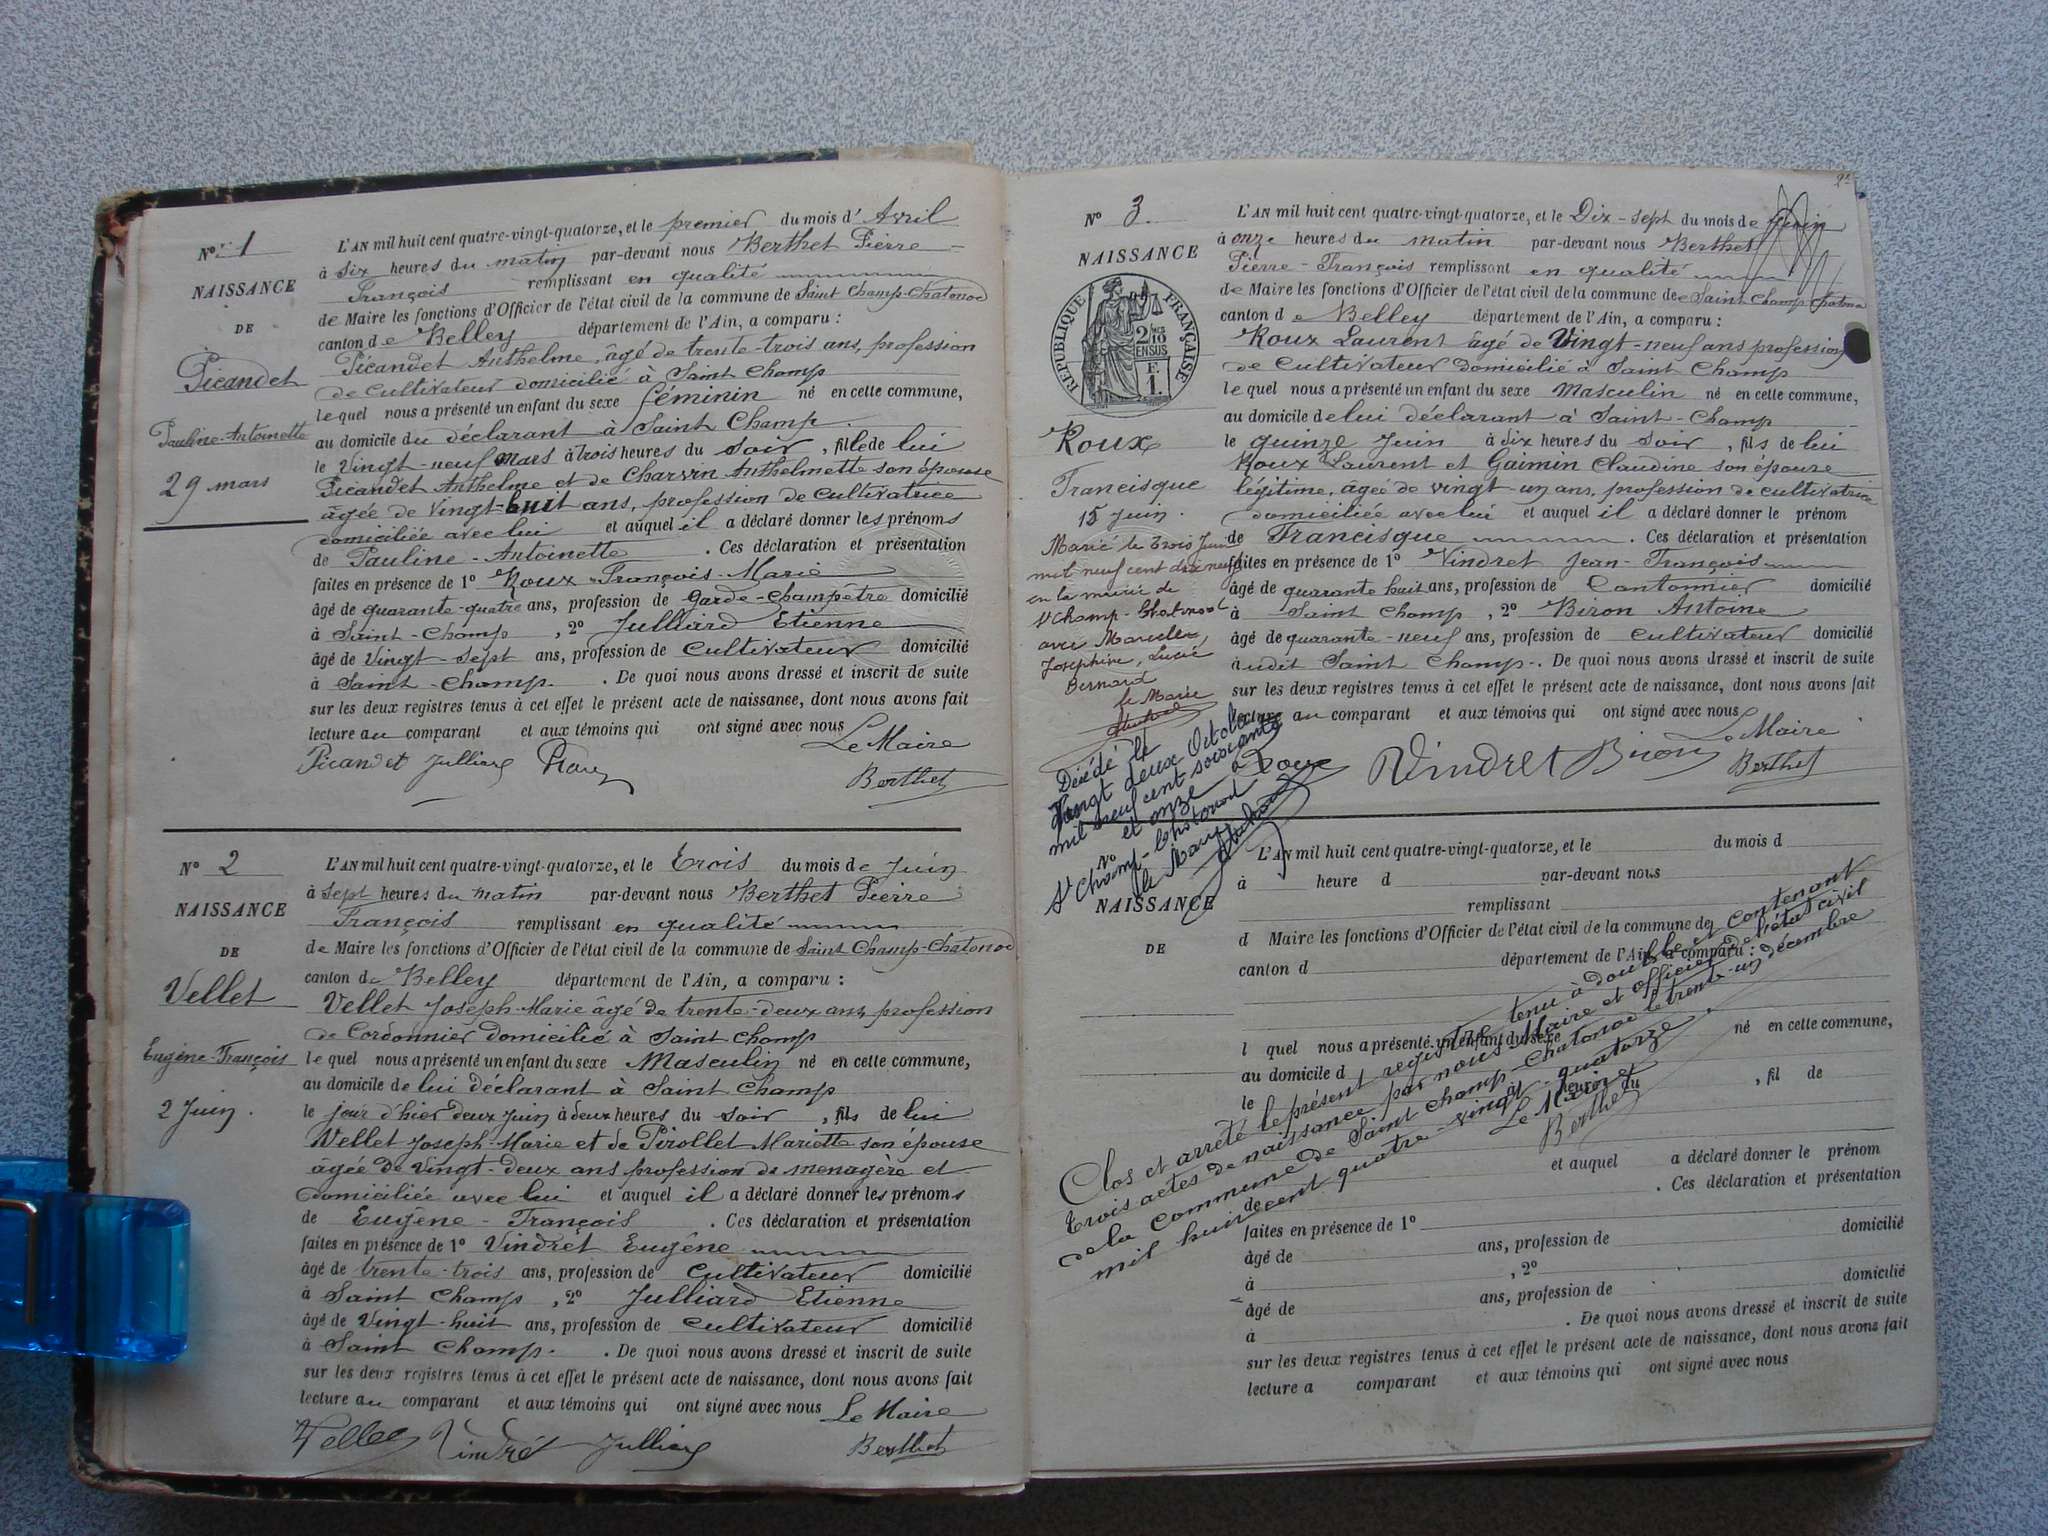 N° 1
NAISSANCE
DE
Picandet
Pauline-Antoinette
29 mars
L'AN mil huit cent quatre-vingt-quatorze, et le premier du mois d'Avril
à Six heures du matin par-devant nous Berthet Pierre
François remplissant en qualité
de Maire les fonctions d'Officier de l'état civil de la commune de Saint Champ-Chatonod
canton de Belley département de l'Ain, a comparu :
Picandet Anthelme, âgé de trente-trois ans, profession
de Cultivateur domicilié à Saint Champ
le quel nous a présenté un enfant du sexe féminin né en cette commune,
au domicile du déclarant à Saint Champ
le Vingt-neuf Mars à trois heures du Soir, fille de lui
Picandet Anthelme et de Charvin Anthelmette son épouse
âgée de Vingt-huit ans, profession de Cultivatrice
domiciliée avec lui et auquel il a déclaré donner les prénoms
de Pauline-Antoinette. Ces déclaration et présentation
faites en présence de 1° Roux François-Marie
âgé de quarante-quatre ans, profession de Garde-Champêtre domicilié
à Saint-Champ, 2° Julliard Etienne
âgé de Vingt-sept ans, profession de Cultivateur domicilié
à Saint-Champ. De quoi nous avons dressé et inscrit de suite
sur les deux registres tenus à cet effet le présent acte de naissance, dont nous avons fait
lecture au comparant et aux témoins qui ont signé avec nous
Le Maire
Picandet Julliard Roux Berthet
N° 2
NAISSANCE
DE
Vellet
Eugène-François
2 Juin.
L'AN mil huit cent quatre-vingt-quatorze, et le Trois du mois de Juin
à Sept heures du matin par-devant nous Berthet Pierre
François remplissant en qualité
de Maire les fonctions d'Officier de l'état civil de la commune de Saint Champ-Chatonod
canton de Belley département de l'Ain, a comparu :
Vellet Joseph-Marie âgé de trente-deux ans, profession
de Cordonnier domicilié à Saint Champ
le quel nous a présenté un enfant du sexe Masculin né en cette commune,
au domicile de lui déclarant à Saint Champ
le jour d'hier deux Juin à deux heures du Soir, fils de lui
Vellet Joseph-Marie et de Pirollet Mariette son épouse
âgée de Vingt-deux ans profession de menagère et
domiciliée avec lui et auquel il a déclaré donner les prénoms
de Eugène-François. Ces déclaration et présentation
faites en présence de 1° Vindret Eugène
âgé de trente-trois ans, profession de Cultivateur domicilié
à Saint Champ, 2° Julliard Etienne
âgé de Vingt-huit ans, profession de Cultivateur domicilié
à Saint Champ. De quoi nous avons dressé et inscrit de suite
sur les deux registres tenus à cet effet le présent acte de naissance, dont nous avons fait
lecture au comparant et aux témoins qui ont signé avec nous Le Maire
Vellet Vindret Julliard Berthet
N° 3.
NAISSANCE
RÉPUBLIQUE FRANÇAISE
2/10
EN SUS
F.
1.
Roux
Francisque
15 Juin.
Marié le trois Juin
mil neuf cent dix neuf
en la mairie de
St Champ-Chatonod
avec Marcelle,
Josephine, Lucie
Bernard
le Maire
Décédé le
Vingt deux Octobre
mil neuf cent soixante
et onze à
St Champ-Chatonod
le Maire
L'AN mil huit cent quatre-vingt-quatorze, et le Dix-sept du mois de Juin
à onze heures du matin par-devant nous Berthet
Pierre-François remplissant en qualité
de Maire les fonctions d'Officier de l'état civil de la commune de Saint Champ Chatonod
canton de Belley département de l'Ain, a comparu :
Roux Laurent âgé de Vingt-neuf ans profession
de Cultivateur domicilié à Saint Champ
le quel nous a présenté un enfant du sexe Masculin né en cette commune,
au domicile de lui déclarant à Saint-Champ
le quinze Juin à Six heures du Soir, fils de lui
Roux Laurent et Gaimin Claudine son épouse
légitime, âgée de vingt-un ans, profession de cultivatrice
domiciliée avec lui et auquel il a déclaré donner le prénom
de Francisque. Ces déclaration et présentation
faites en présence de 1° Vindret Jean-François
âgé de quarante huit ans, profession de Cantonnier domicilié
à Saint Champ, 2° Biron Antoine
âgé de quarante-neuf ans, profession de Cultivateur domicilié
à udit Saint Champ. De quoi nous avons dressé et inscrit de suite
sur les deux registres tenus à cet effet le présent acte de naissance, dont nous avons fait
lecture au comparant et aux témoins qui ont signé avec nous
Le Maire
Roux Vindret Biron Berthet
N°
NAISSANCE
DE
L'AN mil huit cent quatre-vingt-quatorze, et le du mois d
à heure d par-devant nous
remplissant
d Maire les fonctions d'Officier de l'état civil de la commune de
canton d département de l'Ain, a comparu :
l quel nous a présenté un enfant du sexe né en cette commune,
au domicile d
le à heure du , fil de
et auquel a déclaré donner le prénom
de . Ces déclaration et présentation
faites en présence de 1°
âgé de ans, profession de domicilié
à , 2°
âgé de ans, profession de domicilié
à . De quoi nous avons dressé et inscrit de suite
sur les deux registres tenus à cet effet le présent acte de naissance, dont nous avons fait
lecture a comparant et aux témoins qui ont signé avec nous
Clos et arrêté le présent registre tenu à double et contenant
trois actes de naissance par nous Maire et officier de l'état civil
de la commune de Saint Champ-Chatonod le trente-un décembre
mil huit cent quatre-vingt-quatorze.
Le Maire
Berthet